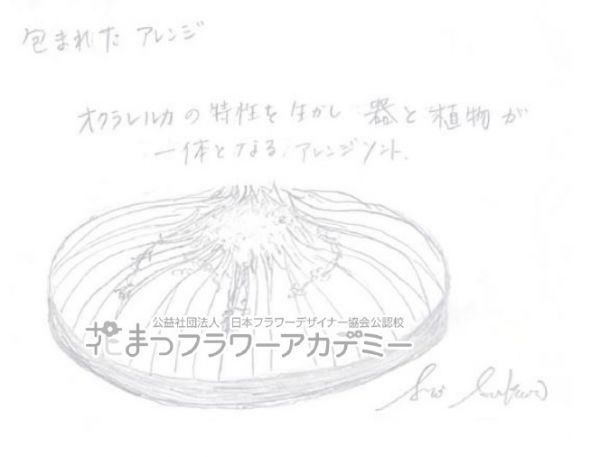 包まれた アレンジ
オクラレルカの特性を生かし 器と植物が
一体となる アレンジメント.
公益社団法人 日本フラワーデザイナー協会公認校
花まつフラワーアカデミー